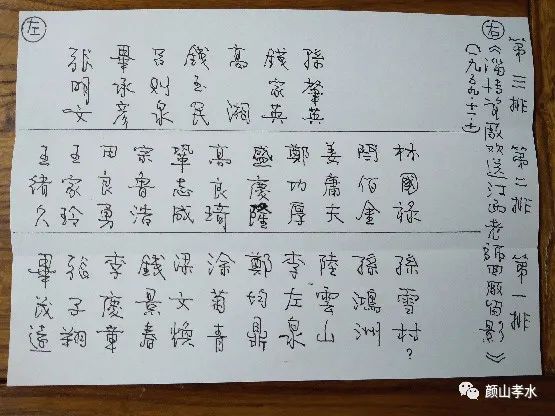 右
左
第三排
第二排
第一排
《淄博瓷厰欢送江西老師回厰留影》
孫肇英
錢家英
高湘
錢玉民
呂則泉
畢承彦
張明文
林國祿
閆佰金
姜庸夫
鄭功厚
盛慶隆
高良琦
鞏志成
宗魯浩
田良勇
王家玲
王緒久
孫雪村?
孫鴻洲
陸雲山
李左泉
鄭均鼎
涂菊青
梁文煥
錢景春
李慶章
張子翔
畢茂遠
颜山孝水